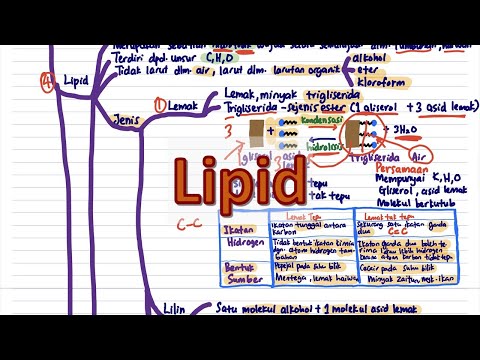 Merupakan sebatian
Terdiri dpd. unsur C,H,O
Tidak larut dlm. air, larut dlm. larutan organik
alkohol
eter
kloroform
④ Lipid
Jenis
① Lemak
Lemak, minyak trigliserida
Trigliserida - sejenis ester (1 gliserol + 3 asid lemak)
3
+
kondensasi
hidrolisis
+ 3H2O
Air
gliserol
asid
trigliserida
Lipid
tepu
tak tepu
Persamaan
Mempunyai C,H,O
Gliserol, asid lemak
Molekul berkutub
C-C
Lemak Tepu
Lemak tak tepu
Ikatan
Ikatan tunggal antara karbon
Sekurang satu ikatan ganda dua
C=C
Hidrogen
Tidak bentuk ikatan kimia dgn. atom hidrogen tambahan
Ikatan ganda dua boleh terima lebih hidrogen
Bentuk
Pepejal pada suhu bilik
Cecair pada suhu bilik
Sumber
Mentega, lemak haiwan
Minyak zaitun, myk. ikan
Lilin
Satu molekul alkohol + 1 molekul asid lemak